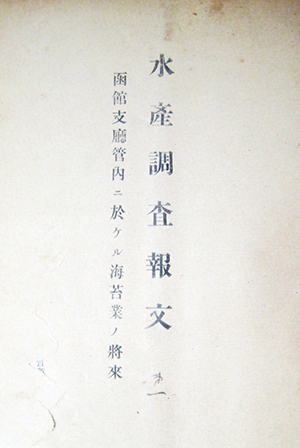 水產調査報文
第一
函館支廳管內ニ於ケル海苔業ノ將來